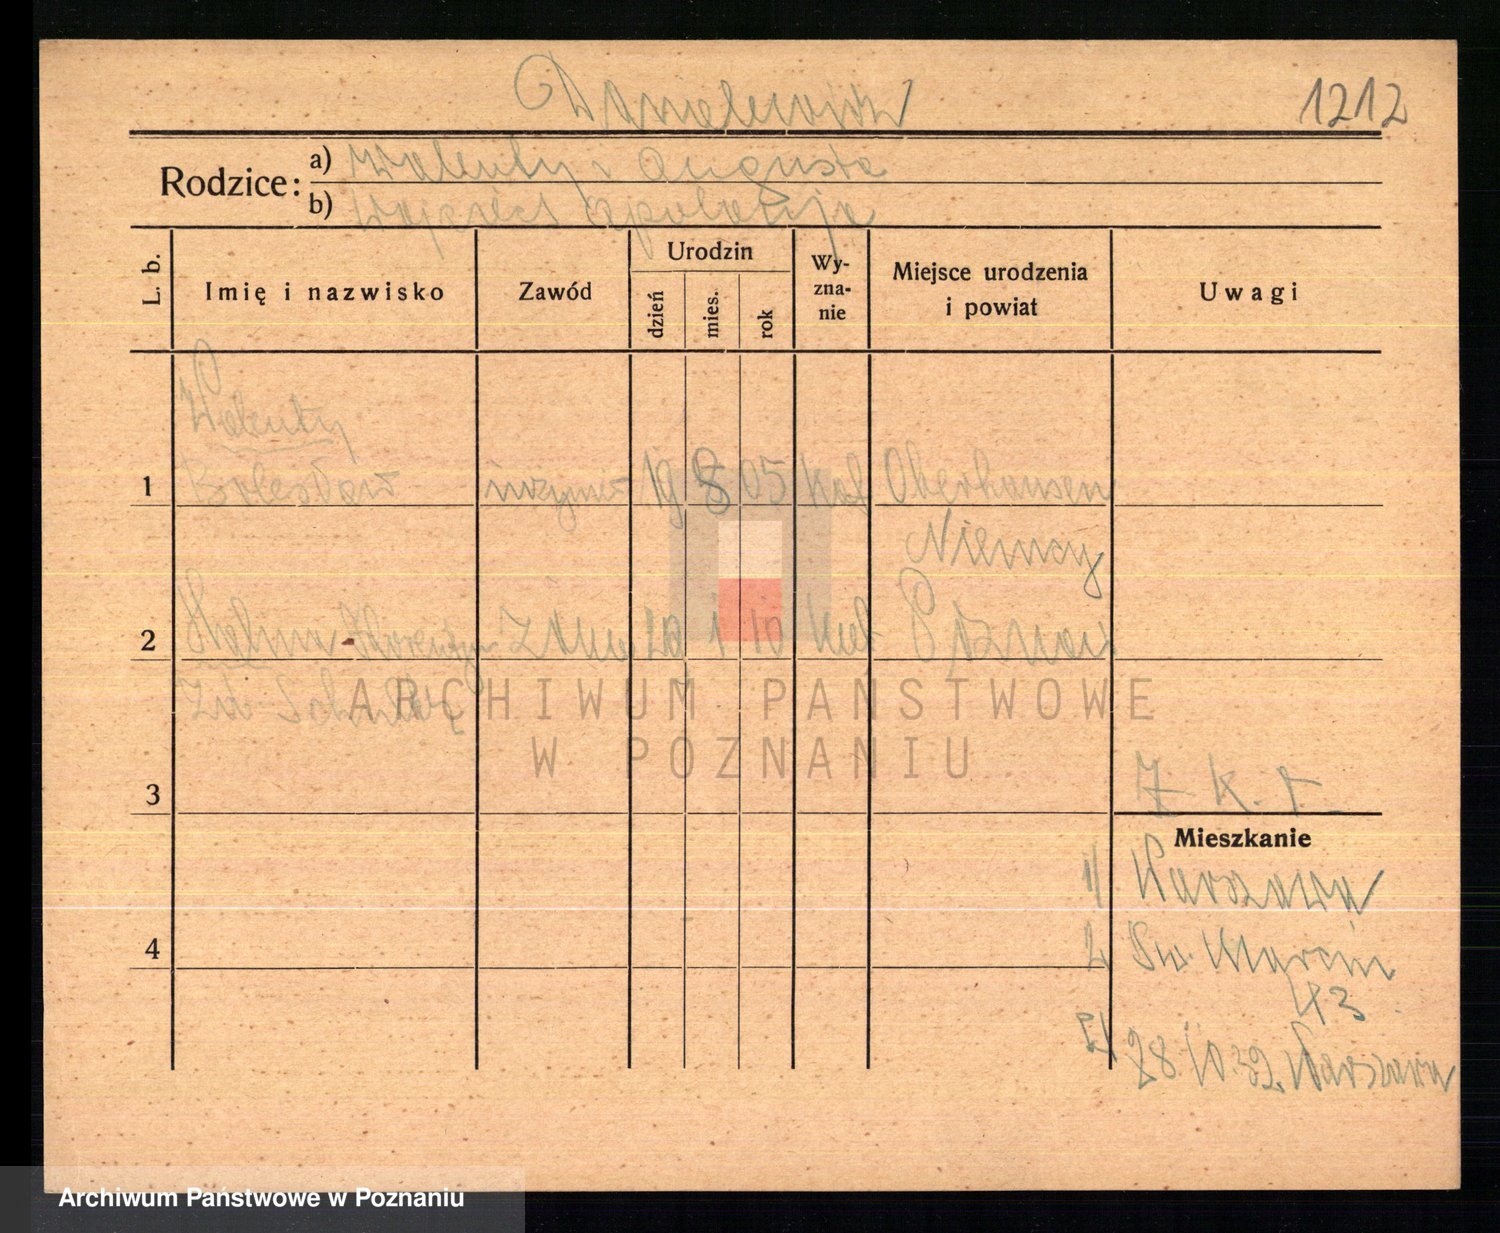 1212
Rodzice: a) Walenty i Augusta
b) Wojciech Apolonja
L. b.
Imię i nazwisko
Zawód
Urodzin
dzień
mies.
rok
Wy-
zna-
nie
Miejsce urodzenia
i powiat
Uwagi
Walenty
1 Bolesław inżynier 19 8 05 kat Oberhausen
Niemcy
2 Halina Żona 20 1 10 kat Poznań
ARCHIWUM PAŃSTWOWE
W POZNANIU
3
Mieszkanie
1/ Warszawa
4
2 Św. Marcin
43
28.10.32. Warszawa
Archiwum Państwowe w Poznaniu